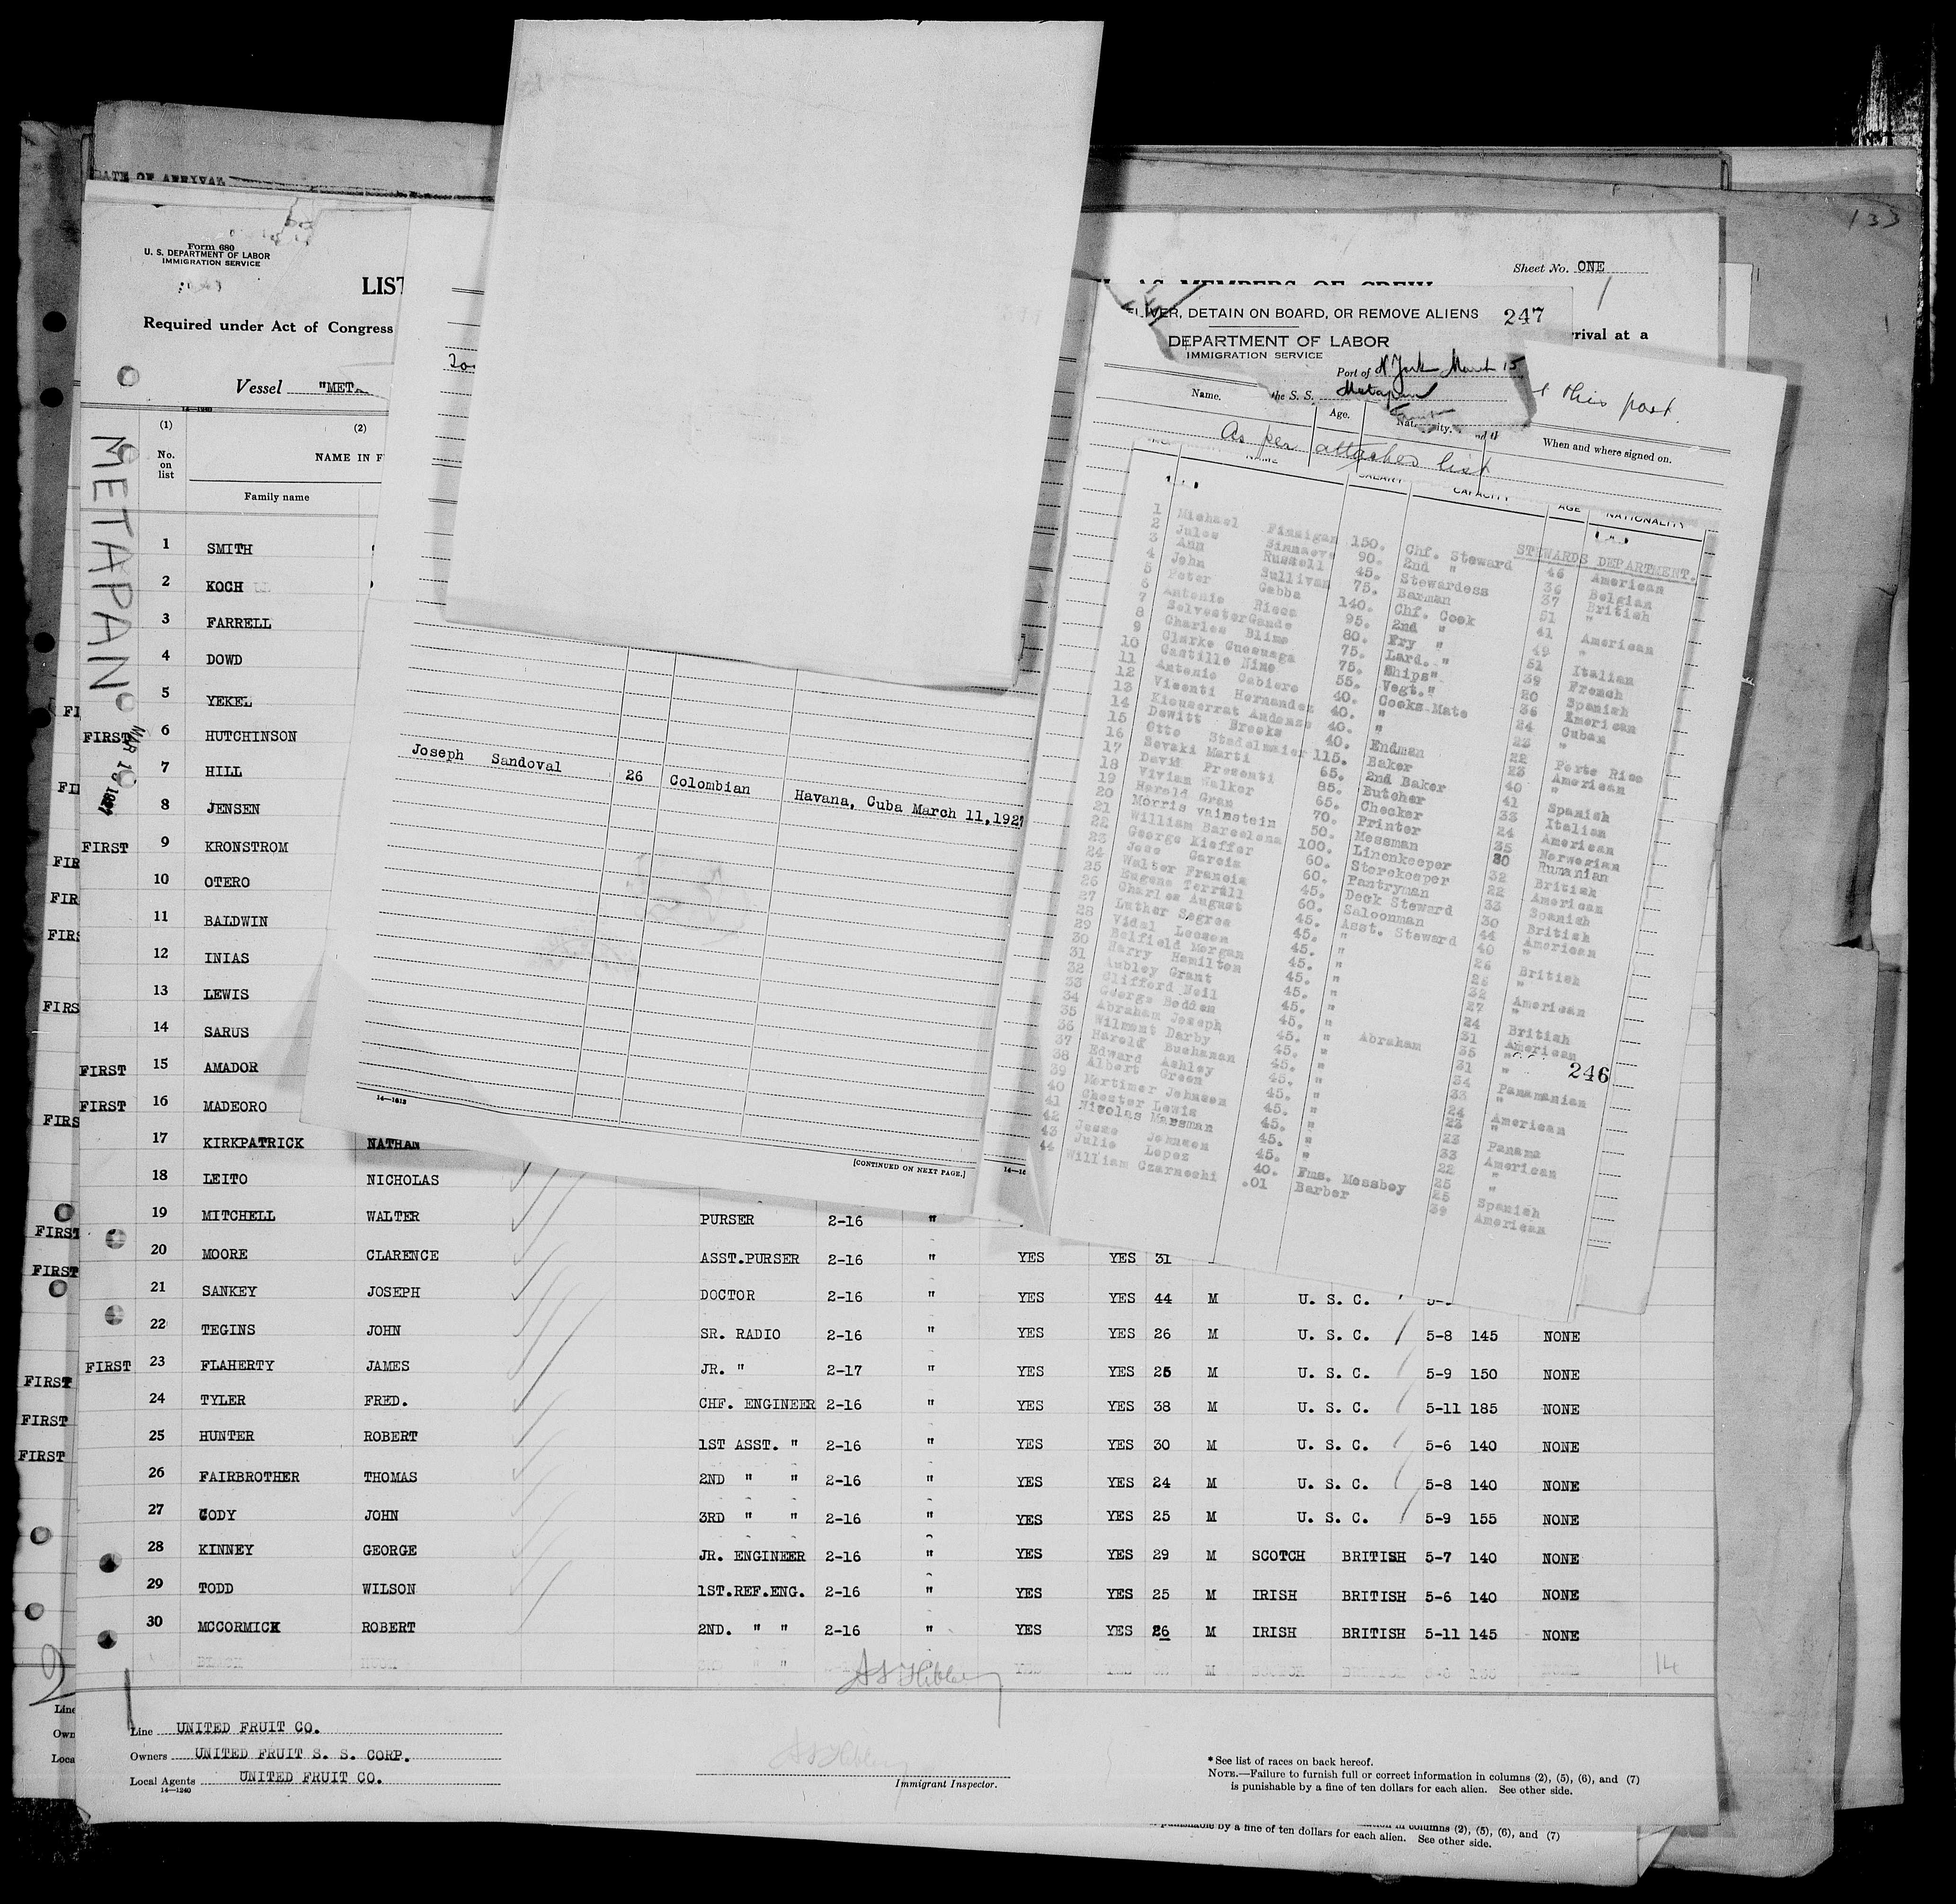 DATE OF ARRIVAL
133
Form 680
U. S. DEPARTMENT OF LABOR
IMMIGRATION SERVICE
Sheet No. ONE
LIST
AS MEMBERS OF CREW
Required under Act of Congress
rrival at a
Vessel "META
14—1240
METAPAN
MAR 1 1927
(1) (2)
No. on list
NAME IN F
Family name
1 SMITH
2 KOCH
3 FARRELL
4 DOWD
5 YEKEL
FIRST 6 HUTCHINSON
7 HILL
8 JENSEN
FIRST 9 KRONSTROM
10 OTERO
11 BALDWIN
12 INIAS
13 LEWIS
14 SARUS
FIRST 15 AMADOR
FIRST 16 MADEORO
17 KIRKPATRICK NATHAN
18 LEITO NICHOLAS
19 MITCHELL WALTER PURSER 2-16 "
20 MOORE CLARENCE ASST.PURSER 2-16 " YES YES 31
21 SANKEY JOSEPH DOCTOR 2-16 " YES YES 44 M U. S. C.
22 TEGINS JOHN SR. RADIO 2-16 " YES YES 26 M U. S. C. 5-8 145 NONE
FIRST 23 FLAHERTY JAMES JR. " 2-17 " YES YES 25 M U. S. C. 5-9 150 NONE
24 TYLER FRED. CHF. ENGINEER 2-16 " YES YES 38 M U. S. C. 5-11 185 NONE
25 HUNTER ROBERT 1ST ASST. " 2-16 " YES YES 30 M U. S. C. 5-6 140 NONE
26 FAIRBROTHER THOMAS 2ND " " 2-16 " YES YES 24 M U. S. C. 5-8 140 NONE
27 CODY JOHN 3RD " " 2-16 " YES YES 25 M U. S. C. 5-9 155 NONE
28 KINNEY GEORGE JR. ENGINEER 2-16 " YES YES 29 M SCOTCH BRITISH 5-7 140 NONE
29 TODD WILSON 1ST.REF.ENG. 2-16 " YES YES 25 M IRISH BRITISH 5-6 140 NONE
30 MCCORMICK ROBERT 2ND. " " 2-16 " YES YES 26 M IRISH BRITISH 5-11 145 NONE
14
Line UNITED FRUIT CO.
Owners UNITED FRUIT S. S. CORP.
Local Agents UNITED FRUIT CO.
14—1240
Immigrant Inspector.
*See list of races on back hereof.
NOTE.—Failure to furnish full or correct information in columns (2), (5), (6), and (7)
is punishable by a fine of ten dollars for each alien. See other side.
columns (2), (5), (6), and (7)
punishable by a fine of ten dollars for each alien. See other side.
Joseph Sandoval 26 Colombian Havana, Cuba March 11,1927
14—1613
[CONTINUED ON NEXT PAGE.]
DETAIN ON BOARD, OR REMOVE ALIENS 247
DEPARTMENT OF LABOR
IMMIGRATION SERVICE
Port of N York March 15
the S. S. Metapan
this port.
Name. Age. When and where signed on.
As per attached list
NAME SALARY CAPACITY AGE NATIONALITY
STEWARDS DEPARTMENT.
1 Michael Finnigan 150. Chf. Steward 46 American
2 Jules 90. 2nd " 36 Belgian
3 Ann Russell 45. Stewardess 37 British
4 John Sullivan 75. Barman 51 "
5 Peter Gabba 140. Chf. Cook 41 American
6 Antonio Ricco 95. 2nd " 49 "
7 Selvester Gande 80. Fry " 51 Italian
8 Charles Blime 75. Lard. " 39 French
9 Clarke 75. Ships" 20 Spanish
10 Castille Nine 55. Vegt." 36 American
11 Antonio Cabiero 40. Cooks Mate 24 Cuban
12 Visenti Hernandez 40. " "
13 40. " 22 Porto Rico
14 Dewitt Brooks 40. Endman 23 American
15 Otto Stadelmaier 115. Baker 40 "
16 Sevaki Marti 65. 2nd Baker 41 Spanish
17 David Presenti 85. Butcher 33 Italian
18 Vivian Walker 65. Checker 24 American
19 Harold Gran 70. Printer 35 Norwegian
20 Morris Vainstein 50. Messman 30 Rumanian
21 William Barcelona 100. Linenkeeper 32 British
22 George Kieffer 60. Storekeeper 22 American
23 Jose Garcia 60. Pantryman 33 Spanish
24 Walter Francis 45. Deck Steward 30 British
25 Eugene Terrall 60. Saloonman 44 American
26 Charles August 45. Asst. Steward 40 "
27 Luther Segree 45. "
28 Vidal Leeson 45. "
29 Belfield Morgan 45. "
30 Harry Hamilton 45. "
31 Aubley Grant 45. "
32 Clifford Neil 45. "
33 George Bedden 45. "
34 Abraham Joseph 45. " Abraham
35 Wilmont Darby 45. "
36 Harold Buchanan 45. "
37 Edward Ashley 45. "
38 Albert Green 45. "
39 Mortimer Johnson 45. "
40 Chester Lewis 45. "
41 Nicolas Marsman 45. "
42 Jesse Johnson 45. "
43 Julio Lopez 40. Fms. Messboy 25 Spanish
44 William Czarnecki .01 Barber 39 American
246